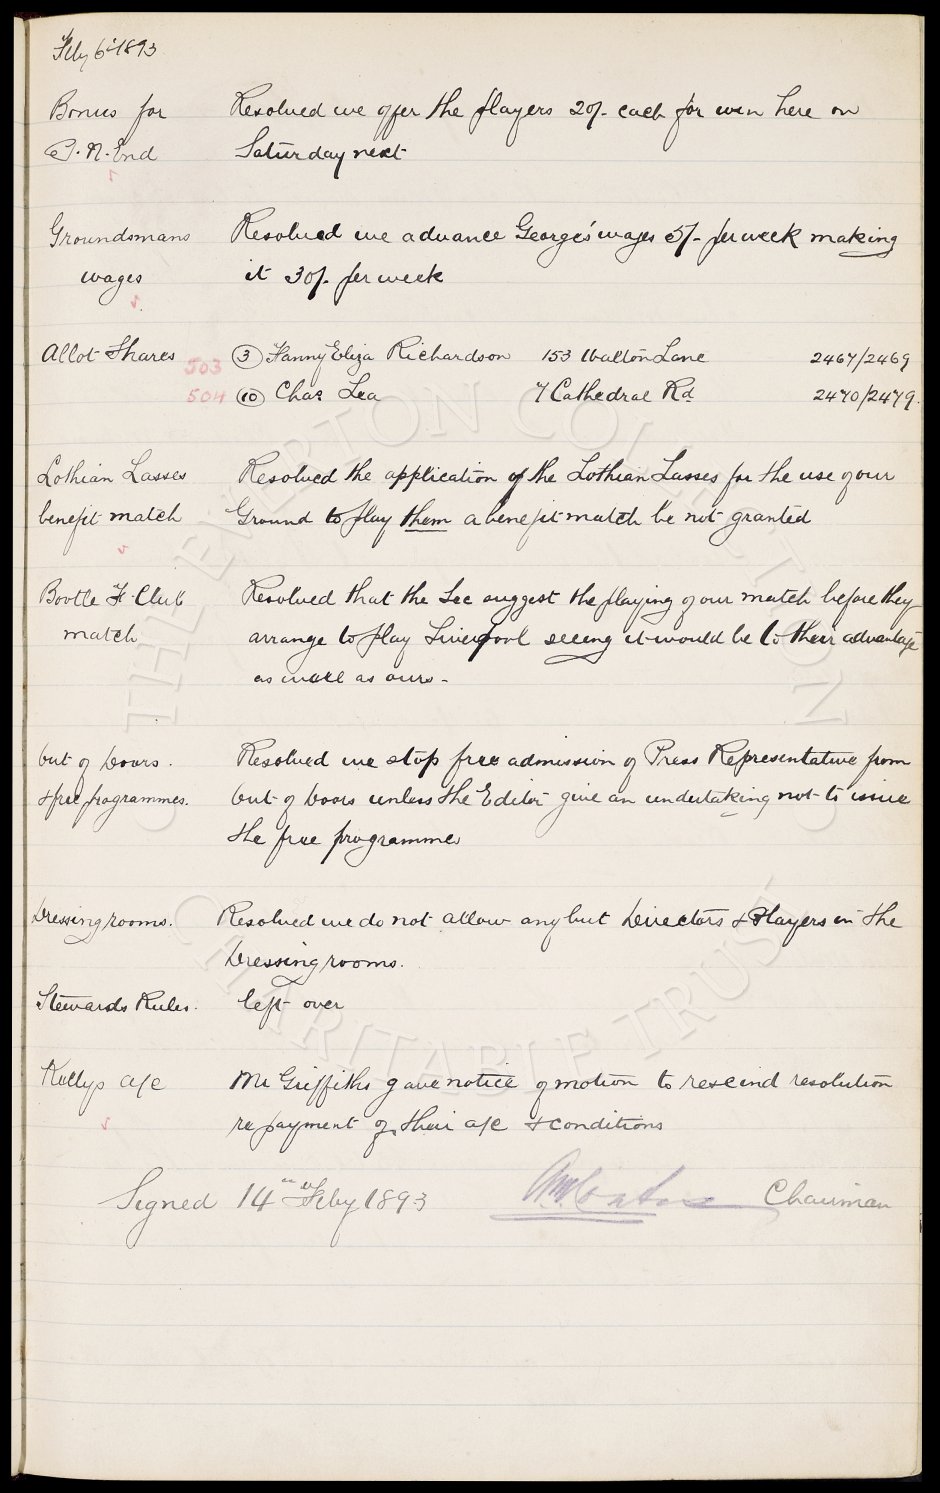 Feby 6th 1893
Bonus for Resolved we offer the players 20/- each for win here on
P. N. End Saturday next
Groundsmans Resolved we advance George's wages 5/- per week making
wages it 30/- per week
Allot Shares 503 (3) Fanny Eliza Richardson 153 Walton Lane 2467/2469
504 (10) Chas Lea 7 Cathedral Rd 2470/2479.
Lothian Lasses Resolved the application of the Lothian Lasses for the use of our
benefit match Ground to play them a benefit match be not granted
Bootle F. Club Resolved that the Sec suggest the playing of our match before they
match arrange to play Liverpool seeing it would be to their advantage
as well as ours -
Out of Doors. Resolved we stop free admission of Press Representative from
& free programmes. Out of Doors unless the Editor give an undertaking not to issue
the free programmes
Dressing rooms. Resolved we do not allow any but Directors & Players in the
Dressing rooms.
Stewards Rules. left over
Kellys a/c Mr Griffiths gave notice of motion to rescind resolution
re payment of their a/c & conditions
Signed 14th Feby 1893 Chairman
THE EVERTON COLLECTION
CHARITABLE TRUST